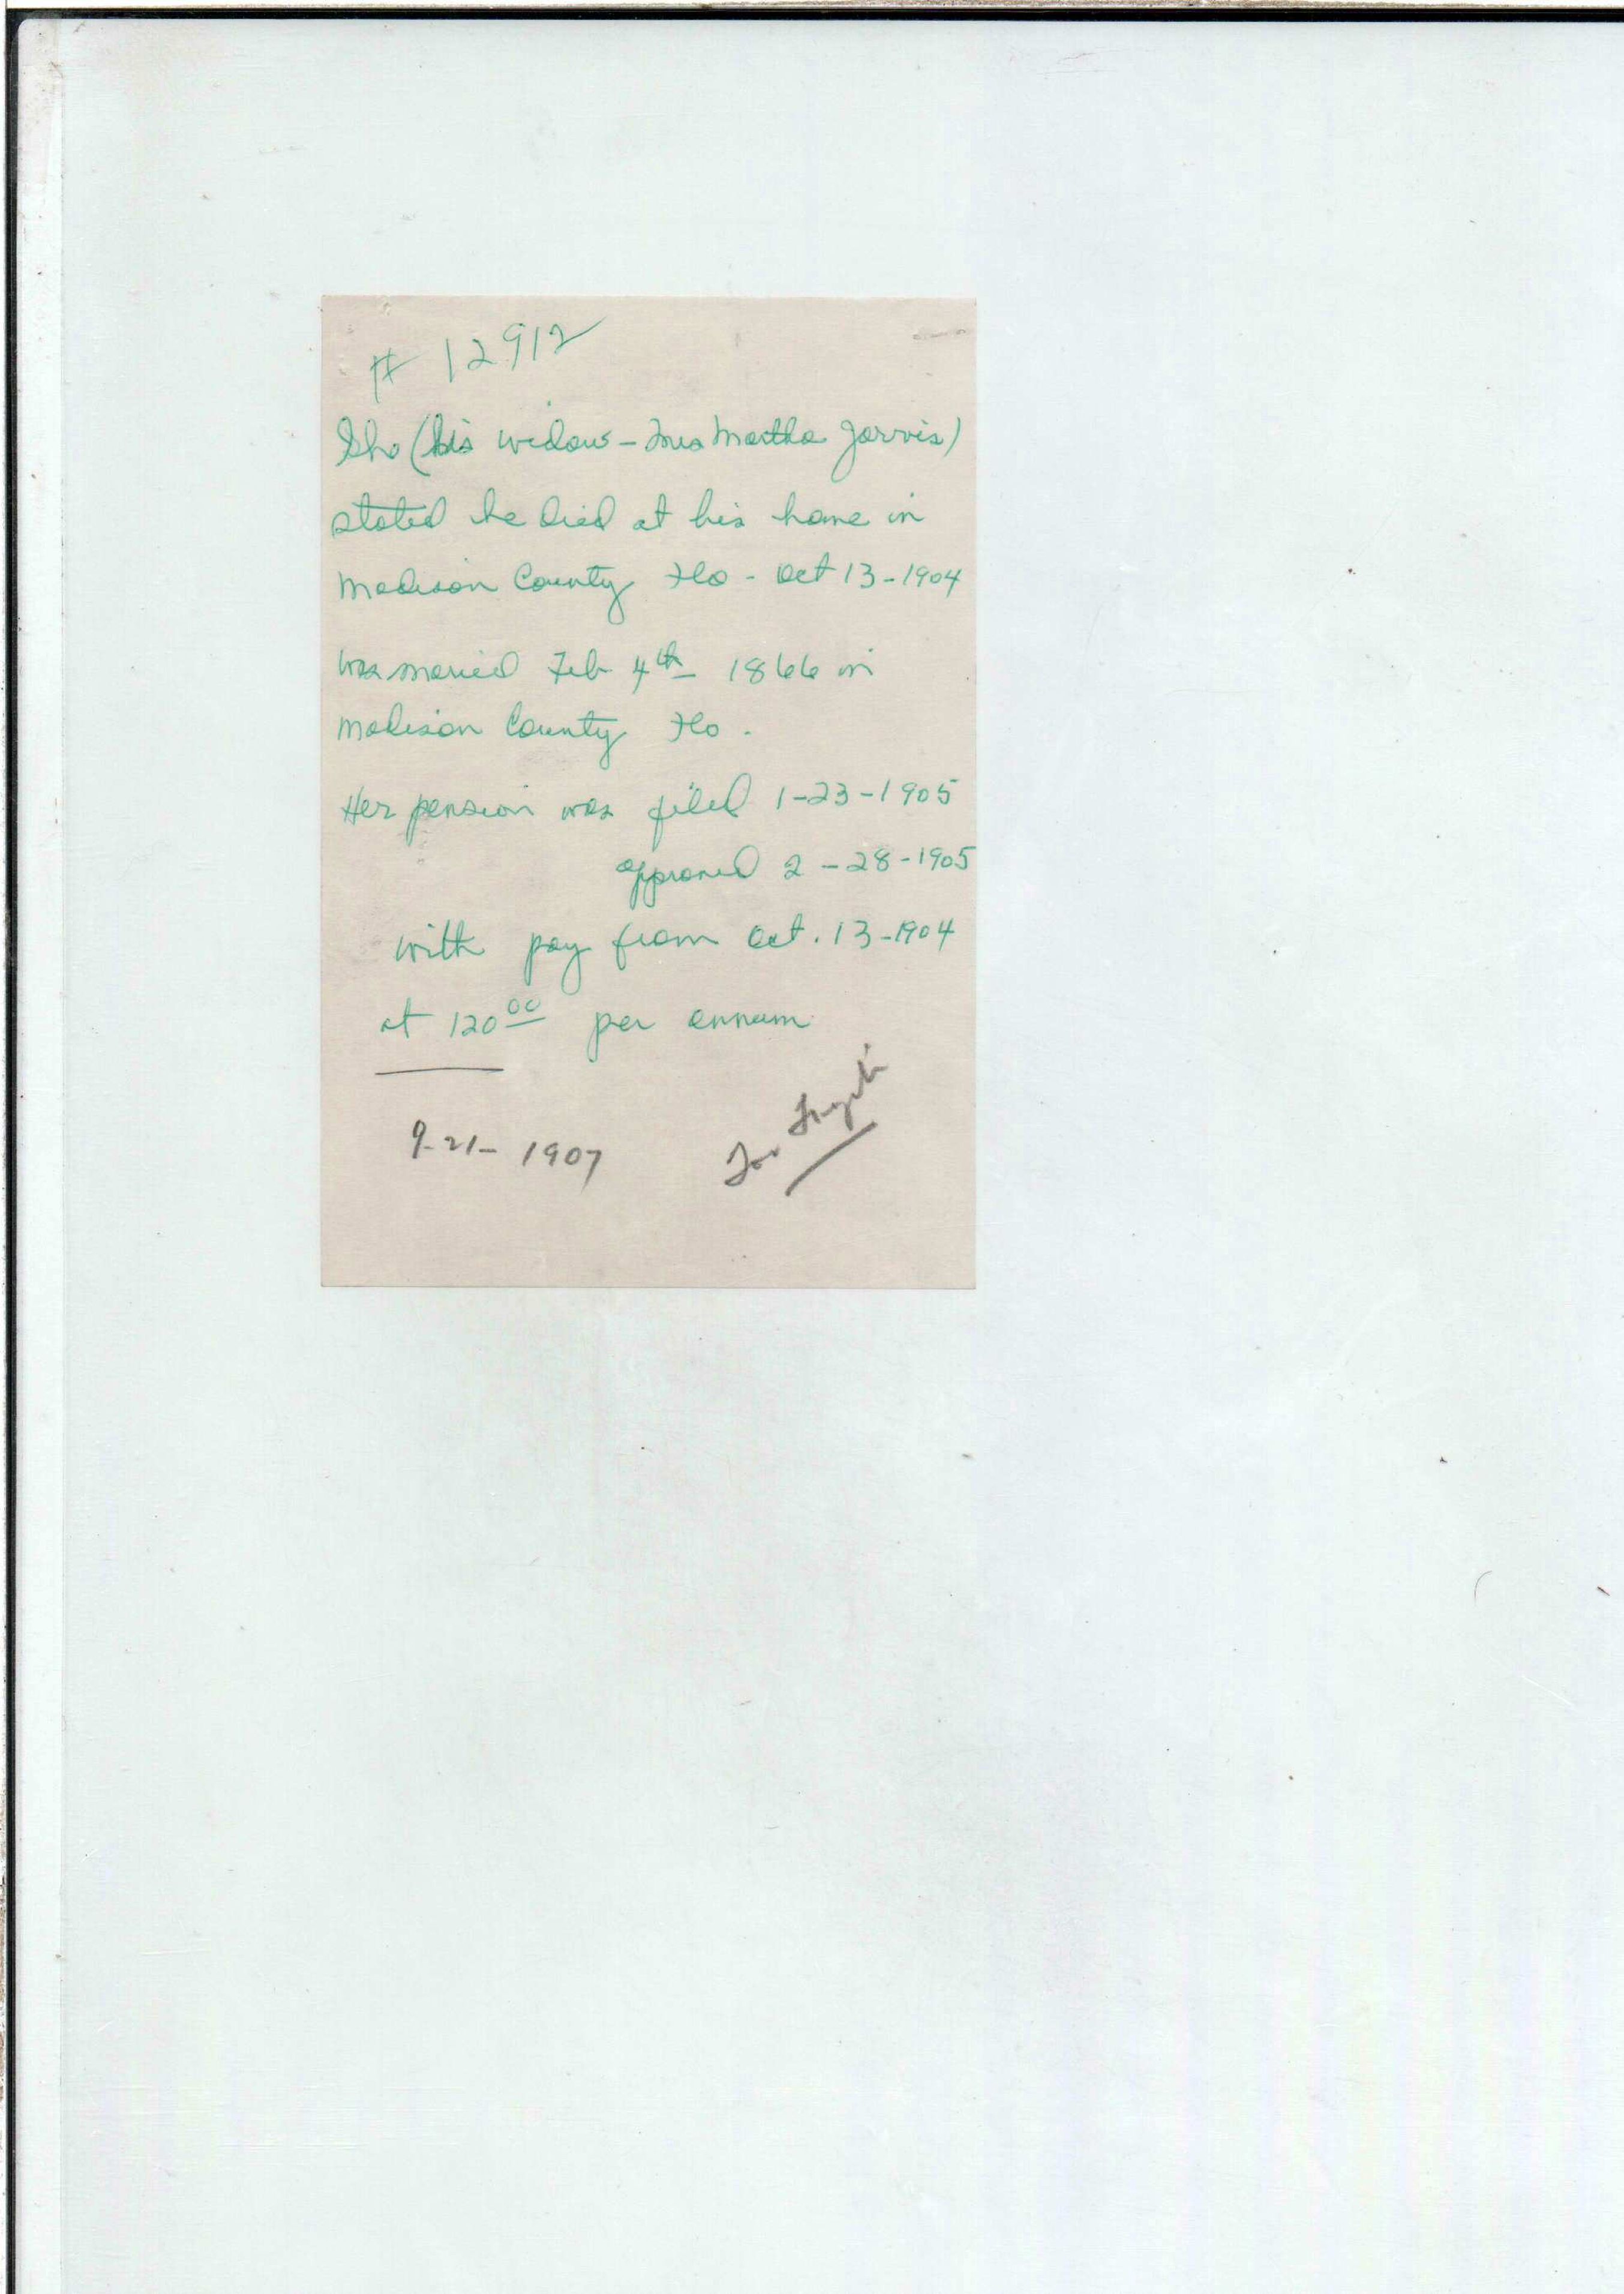 # 12912
She (his widow - Mrs Martha Jarvis)
stated he died at his home in
Madison County Fla - Oct 13-1904
was maried Feb 4th 1866 in
Madison County Fla.
Her pension was filed 1-23-1905
approved 2-28-1905
with pay from Oct. 13-1904
at 120 00 per annum
9-21-1907